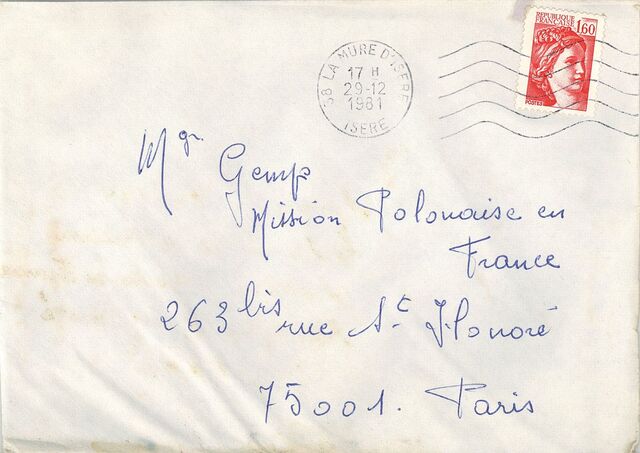 38 LA MURE D'ISERE
17 H
29-12
1981
ISERE
REPUBLIQUE
FRANCAISE
1,60
POSTES
Mgr Gemp
Mission Polonaise en
France
263 bis rue St Honoré
75001. Paris